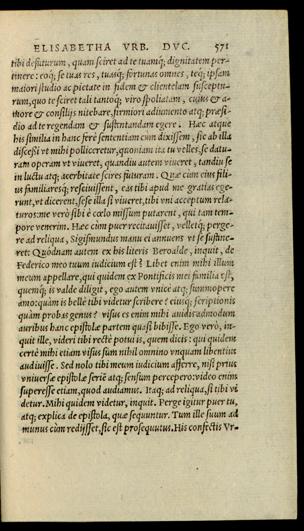 ELISABETHA VRB. DVC. 571
tibi defuturum, quam sciret ad te tuamq; dignitatem per-
tinere: eoq; se tuas res, tuasq; fortunas omnes, teq; ipsam
maiori studio ac pietate in fidem & clientelam susceptu-
rum, quo te sciret tali tantoq; viro spoliatam, cuius & a-
more & consilijs nitebare, firmiori adiumento atq; præsi-
dio ad te regendam & sustentandam egere. Hæc atque
his similia in hanc ferè sententiam cum dixissem, sic ab illa
discessi vt mihi polliceretur, quoniam ita tu velles, se datu-
ram operam vt viueret, quandiu autem viueret, tandiu se
in luctu atq; acerbitate scires futuram. Quæ cùm eius fili-
us familiaresq; resciuissent, eas tibi apud me gratias ege-
runt, vt dicerent, sese illa si viueret, tibi vni acceptum rela-
turos: me verò sibi è cœlo missum putarent, qui tam tem-
pore venerim. Hæc cùm puer recitauisset, velletq; perge-
re ad reliqua, Sigismundus manu ei annuens vt se sustine-
ret: Quodnam autem ex his literis Beroalde, inquit, de
Federico meo tuum iudicium est? Libet enim mihi illum
meum appellare, qui quidem ex Pontificis mei familia est,
quemq; is valde diligit, ego autem vnice atq; summopere
amo: quàm is bellè tibi videtur scribere? eiusq; scriptionis
quàm probas genus? visus es enim mihi auidis admodum
auribus hanc epistolæ partem quasi bibisse. Ego verò, in-
quit ille, videri tibi rectè potui is, quem dicis: qui quidem
certè mihi etiam visus sum nihil omnino vnquam libentius
audiuisse. Sed nolo tibi meum iudicium afferre, nisi prius
vniuersæ epistolæ seriē atq; sensum percepero: video enim
superesse etiam, quod audiamus. Itaq; ad reliqua, si tibi vi
detur. Mihi quidem videtur, inquit. Perge igitur puer tu,
atq; explica de epistola, quæ sequuntur. Tum ille suum ad
munus cùm redijsset, sic est prosequutus. His confectis Vr-